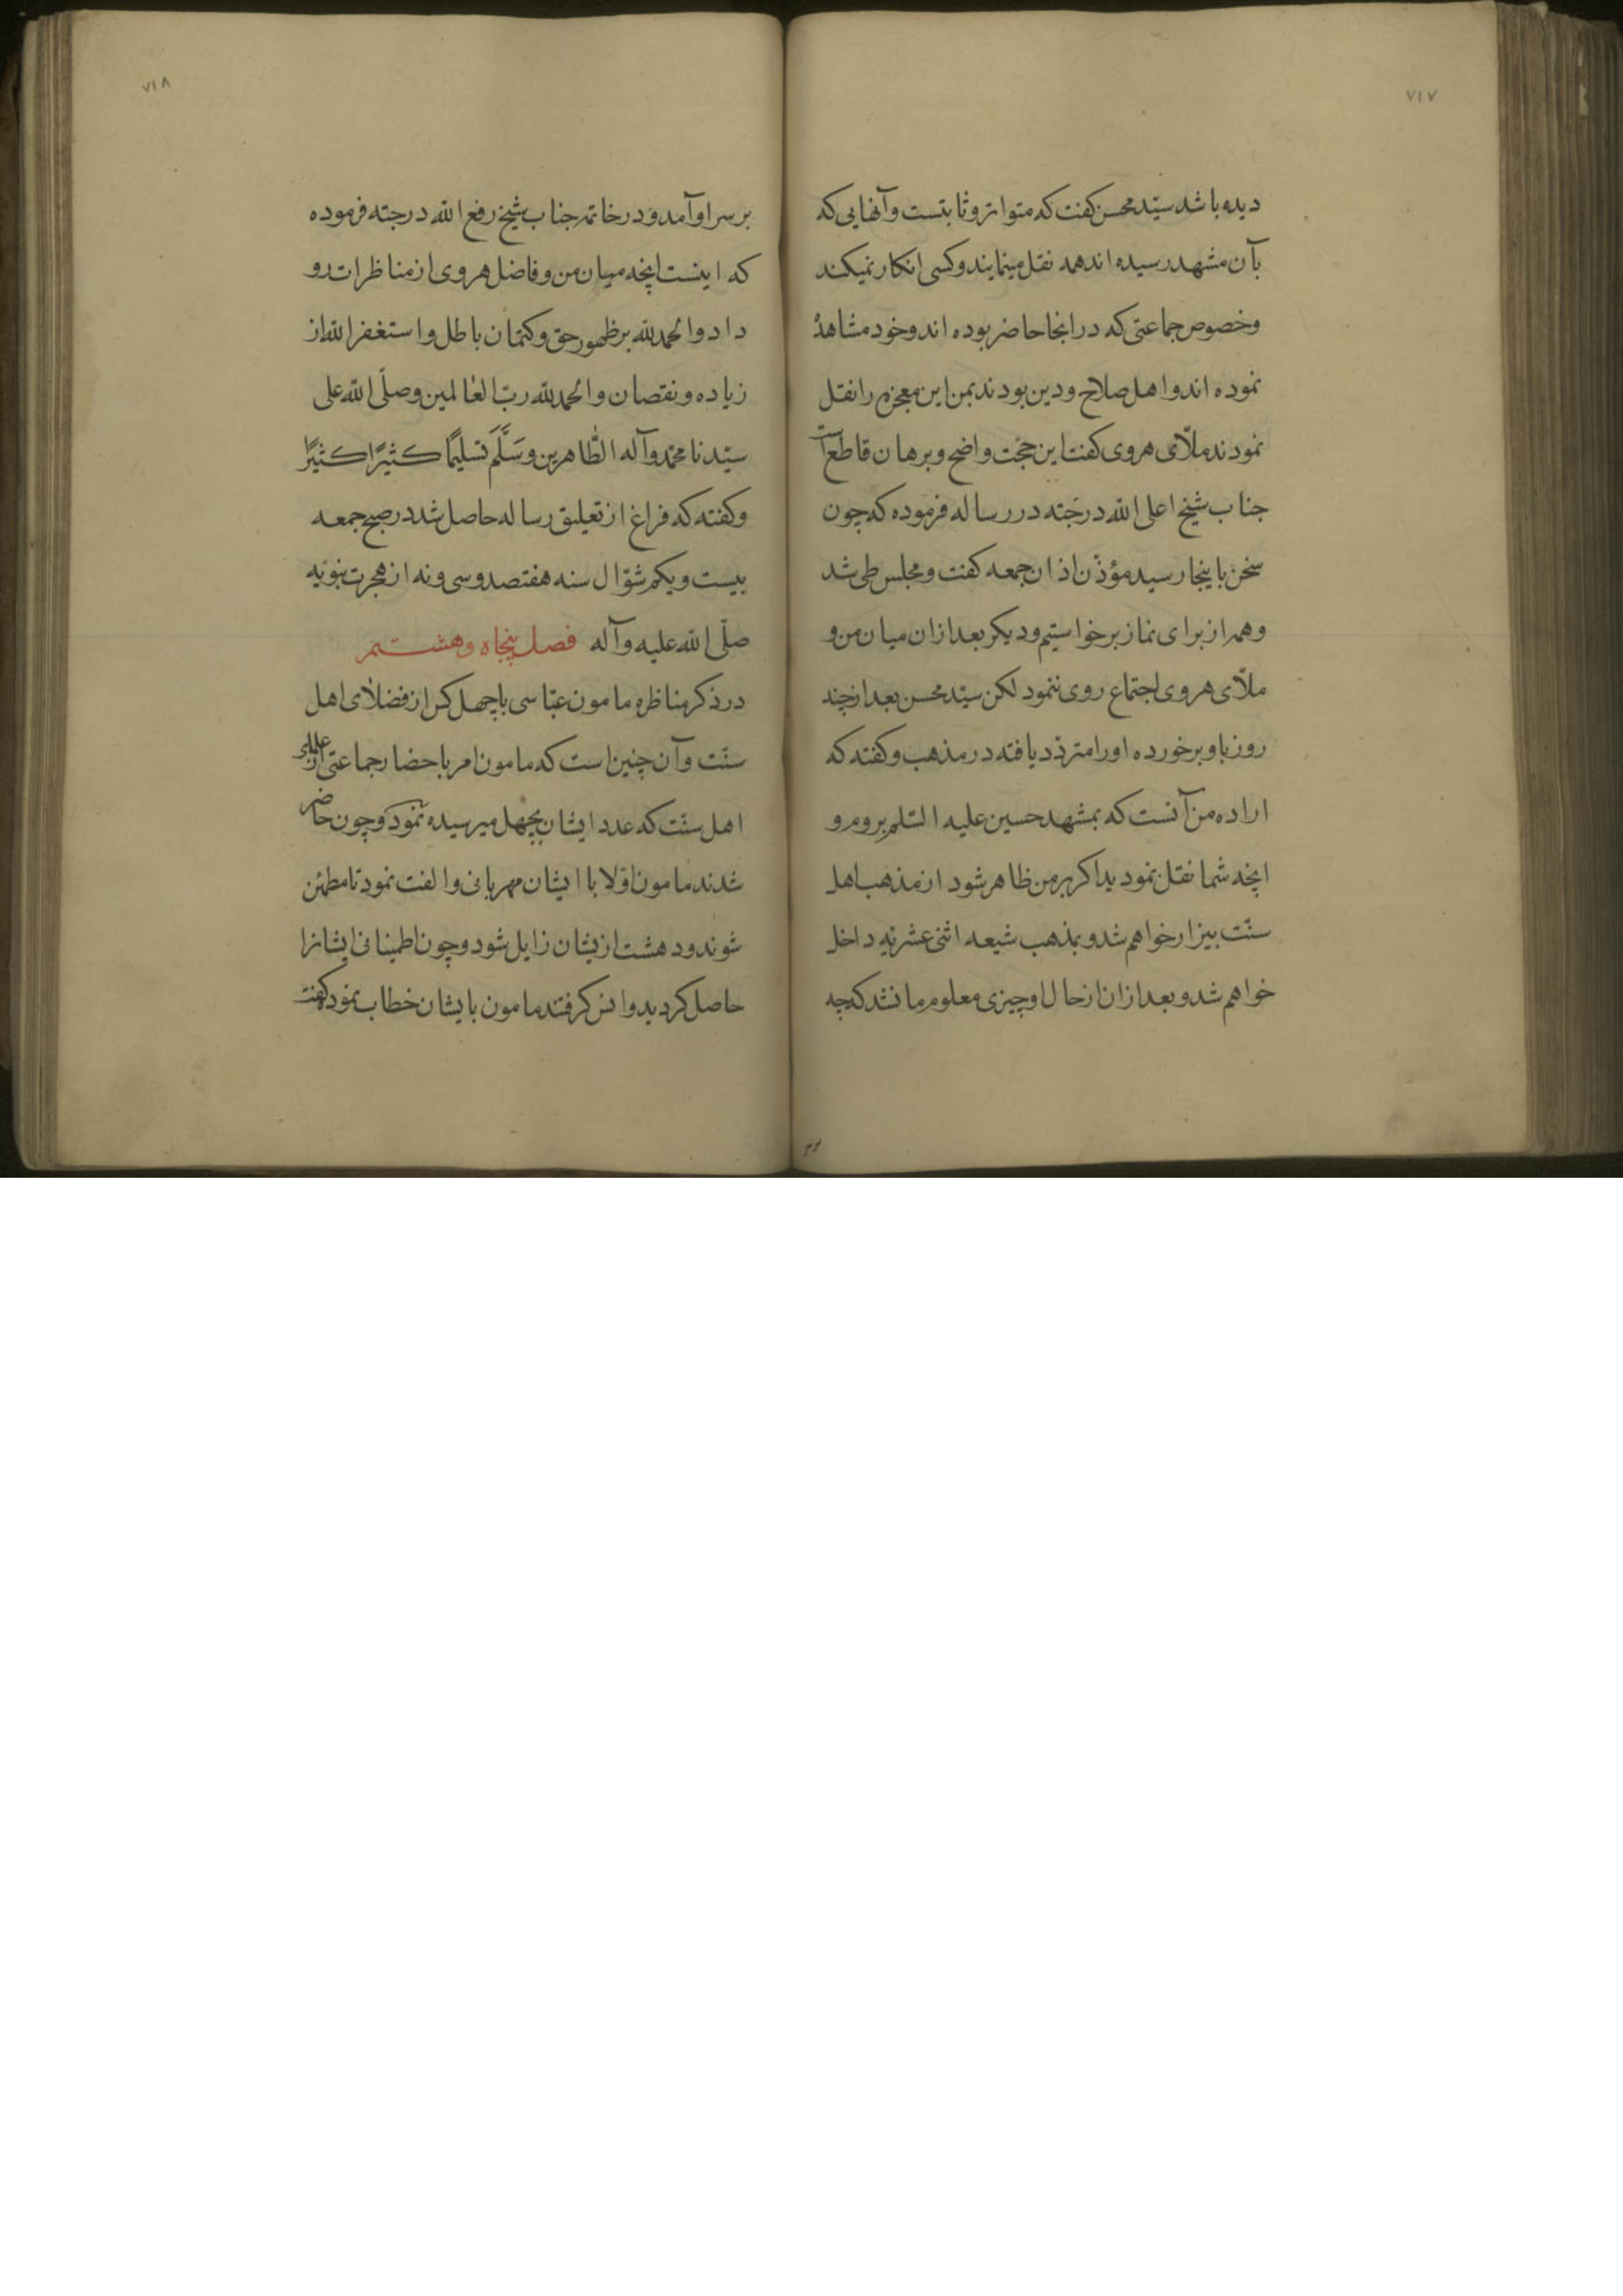 ۷۱۷
دیده باشد سیّد محسن کفت که متواتر و ثابتست و آنهایی که
بآن مشهد رسیده اند همه نقل مینمایند و کسی انکار نمیکند
و خصوص جماعتی که در انجا حاضر بوده اند و خود مشاهدهٔ
نموده اند و اهل صلاح و دین بودند بمن این معجزه را نقل
نمودند ملّای هروی کفت این حجّت واضح و برهان قاطع است
جناب شیخ اعلی الله درجته در رساله فرموده که چون
سخن باینجا رسید مؤذّن اذان جمعه کفت و مجلس طی شد
و همه از برای نماز برخواستیم و دیکر بعد ازان میان من و
ملّای هروی اجتماع روی ننمود لکن سیّد محسن بعد از چند
روز باو برخورده او را متردّد یافته در مذهب و کفته که
اراده من آنست که بمشهد حسین علیه السّلم بروم و
انچه شما نقل نمودید اکر بر من ظاهر شود از مذهب اهل
سنّت بیزار خواهم شد و بمذهب شیعه اثنی عشریّه داخل
خواهم شد و بعد ازان از حال او چیزی معلوم ما نشد که چه
۷۱۸
بر سر او آمد و در خاتمه جناب شیخ رفع الله درجته فرموده
که اینست انچه میان من و فاضل هروی از مناظرات رو
داد و الحمدلله بر ظهور حق و کتمان باطل و استغفر الله از
زیاده و نقصان و الحمدلله ربّ العالمین و صلّی الله علی
سیّدنا محمّد و آله الطّاهرین وَسَلَّمَ تسلیمًا کثیرًا کثیرًا
و کفته که فراغ از تعلیق رساله حاصل شد در صبح جمعه
بیست و یکم شوّال سنه هفتصد و سی و نه از هجرت نبویّه
صلّی الله علیه و آله فصل پنجاه و هشتم
در ذکر مناظره مامون عبّاسی با چهل کس از فضلای اهل
سنّت و آن چنین است که مامون امر باحضار جماعتی از علمای
اهل سنّت که عدد ایشان بچهل میرسیده نمود و چون حاضر
شدند مامون اوّلا با ایشان مهربانی و الفت نمود تا مطمئن
شوند و دهشت ازیشان زایل شود و چون اطمینانی ایشانرا
حاصل کردید و انس کرفتند مامون بایشان خطاب نموده کفت